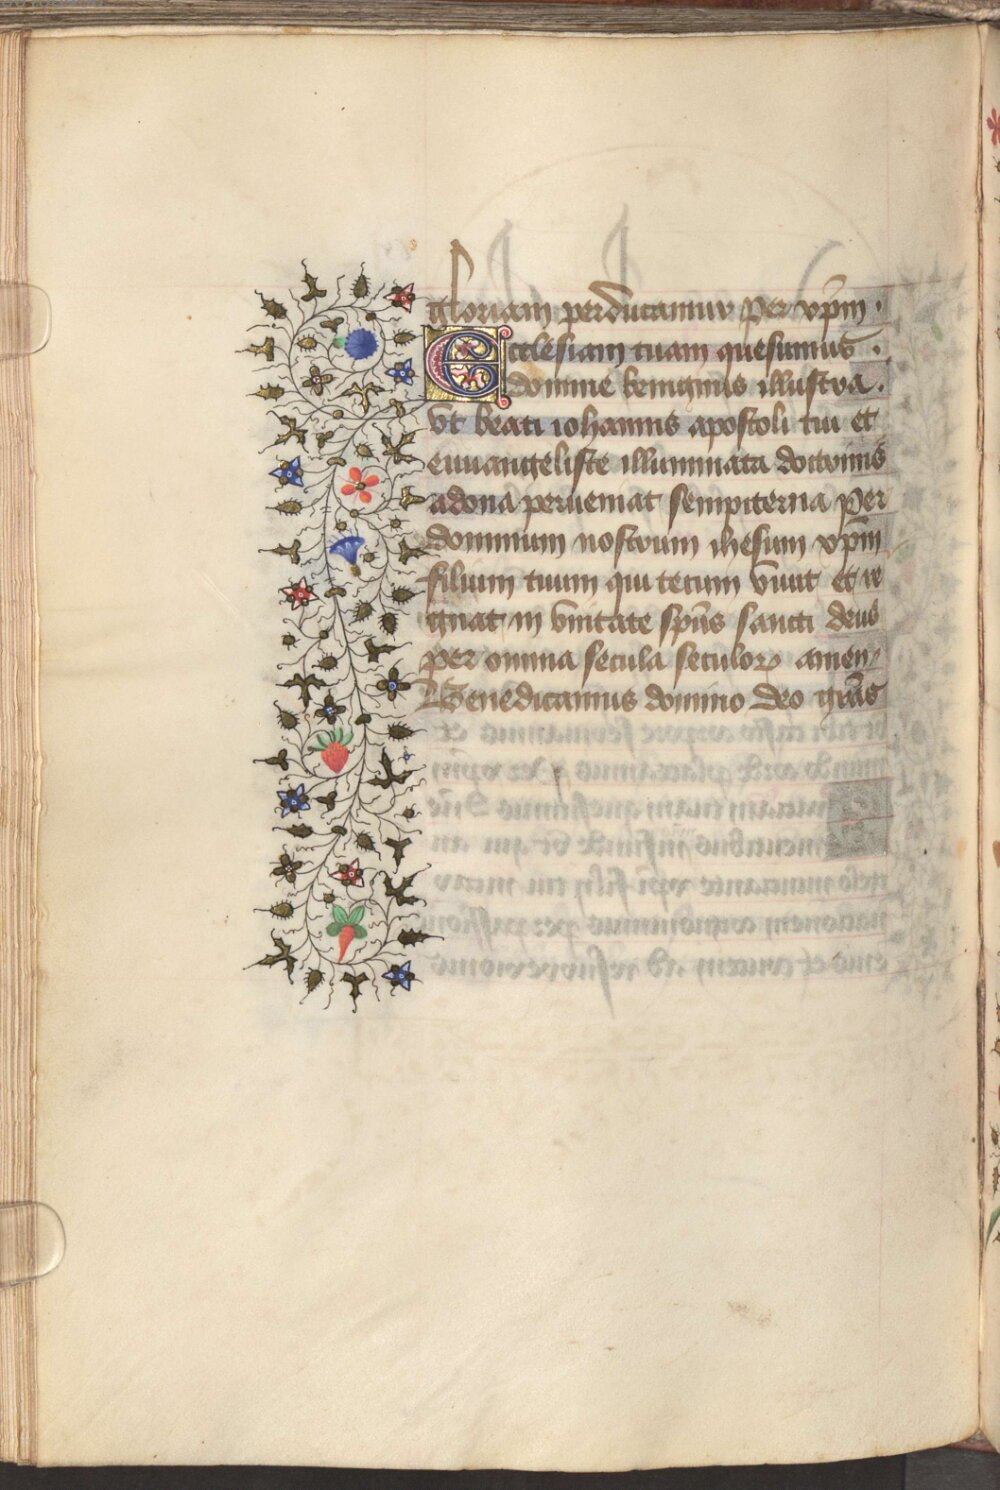 gloriam perducamur Per xp̄m ·
Ecclesiam tuam quesumus ·
domine benignus illustra ·
vt beati iohannis apostoli tui et
euuangeliste illuminata doctrinis
ad dona perueniat sempiterna Per
dominum nostrum ihesum xp̄m
filium tuum qui tecum viuit et re
gnat in vnitate sp̄us sancti deus
per omnia secula seculoꝝ amen
Benedicamus domino Deo gr̄as